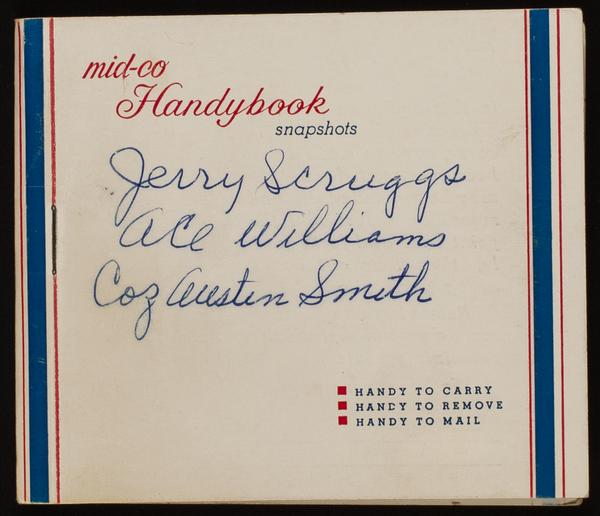 mid-co
Handybook
snapshots
Jerry Scruggs
Ace Williams
Coz Austen Smith
HANDY TO CARRY
HANDY TO REMOVE
HANDY TO MAIL